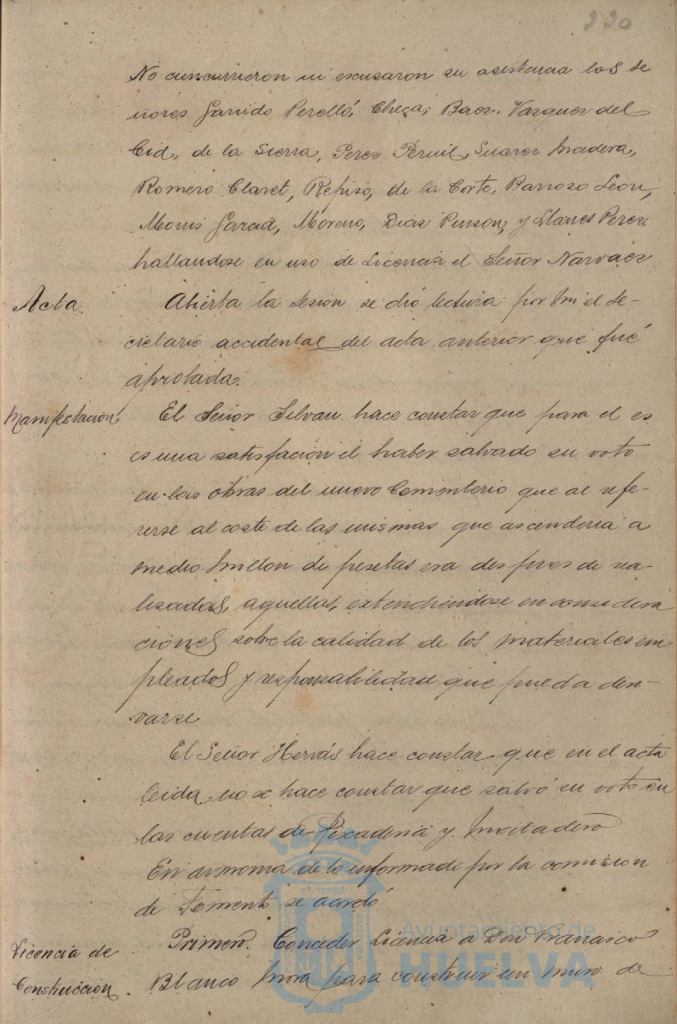 220
No concurrieron ni escusaron su asistencia los Se-
ñores Garrido Perelló, Checa, Baez, Vazquez del
Cid, de la Sierra, Perez Peruil, Suarez Madera,
Romero Claret, Repiso, de la Corte, Barroso Leon,
Garcia, Moreno, Diaz Pinson, y Llanes Perez
hallandose en uso de Licencia el Señor Narvaez
Acta. Abierta la sesion se dió lectura por mi el Se-
cretario accidental del acta anterior que fué
aprobada.
Manifestación El Señor Silvan hace constar que para el es
es una satisfación el haber salvado su voto
en las obras del nuevo Cementerio que al refe-
rirse al coste de las mismas que ascenderia a
medio millon de pesetas era despues de rea-
lisadas, aquellas, extendiendose en considera
ciones sobre la calidad de los materiales em
pleados y responsabilidad que pueda deri-
varse
El Señor Hervás hace constar que en el acta
leida no se hace constar que salvó su voto en
las cuentas de Pescaderia y Matadero
En armonia de lo informado por la comision
de Fomento se acordó
Licencia de Primero. Conceder Licencia a Don Francisco
Construccion. Blanco Mora para construir un muro de
Ayuntamiento de
HUELVA